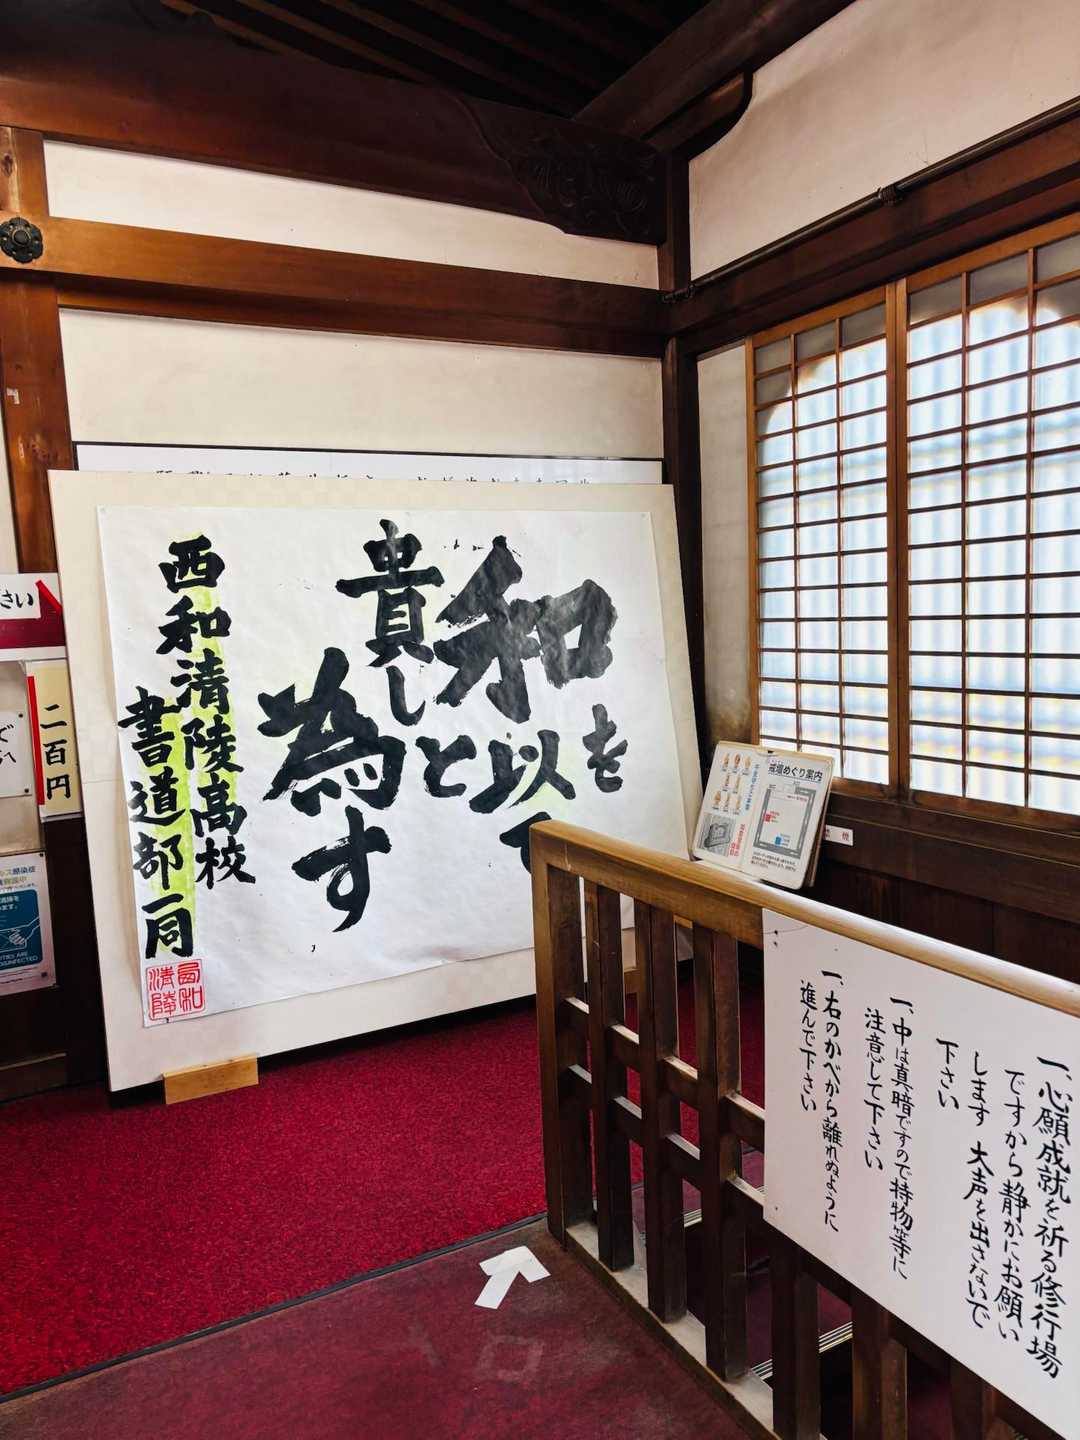 和を以て
貴しと
為す
西和清陵高校
書道部一同
西和
清陵
さい
二百円
戒壇めぐり案内
一、心願成就を祈る修行場
ですから静かにお願い
します 大声を出さないで
下さい
一、中は真暗ですので持物等に
注意して下さい
一、右のかべから離れぬように
進んで下さい